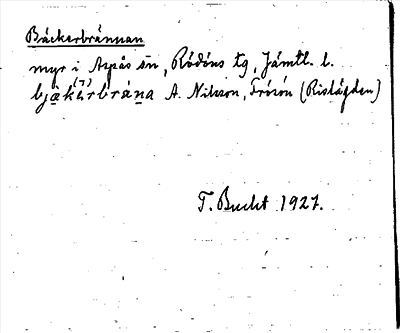 Bäckerbrännan
myr i Aspås sn, Rödöns tg, Jämtl. l.
A. Nilsson, Frösön (Rislägden)
T. Bucht 1927.